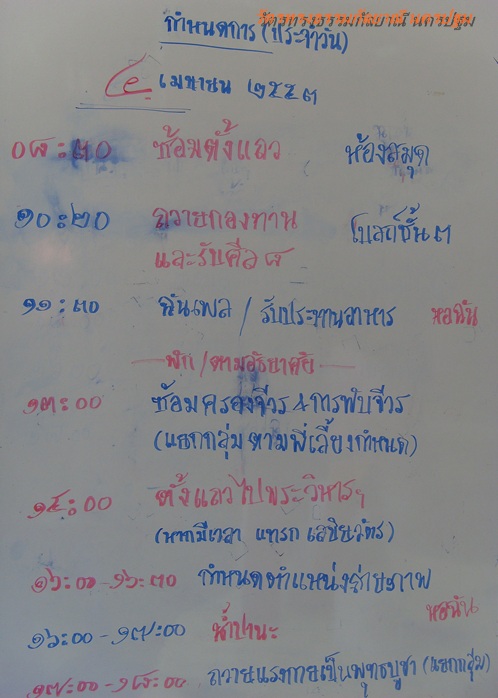 วัตรทรงธรรมกัลยาณี นครปฐม
กำหนดการ (ประจำวัน)
๕ เมษายน ๒๕๕๓
๐๘:๓๐ ซ้อมตั้งแถว ห้องสมุด
๑๐:๒๐ ถวายกองทาน โบสถ์ชั้น ๓
และรับศีล ๘
๑๑:๓๐ ฉันเพล / รับประทานอาหาร หอฉัน
—พัก/ตามอัธยาศัย—
๑๓:๐๐ ซ้อมครองจีวร & การพับจีวร
(แยกกลุ่ม ตามพี่เลี้ยงกำหนด)
๑๔:๐๐ ตั้งแถวไปพระวิหารฯ
(หากมีเวลา แทรก เสขิยวัตร)
๑๖:๐๐ - ๑๖:๓๐ กำหนดตำแหน่งถ่ายภาพ
๑๖:๐๐ - ๑๗:๐๐ น้ำปานะ หอฉัน
๑๗:๐๐ - ๑๘:๐๐ ถวายแรงกายเป็นพุทธบูชา (แยกกลุ่ม)